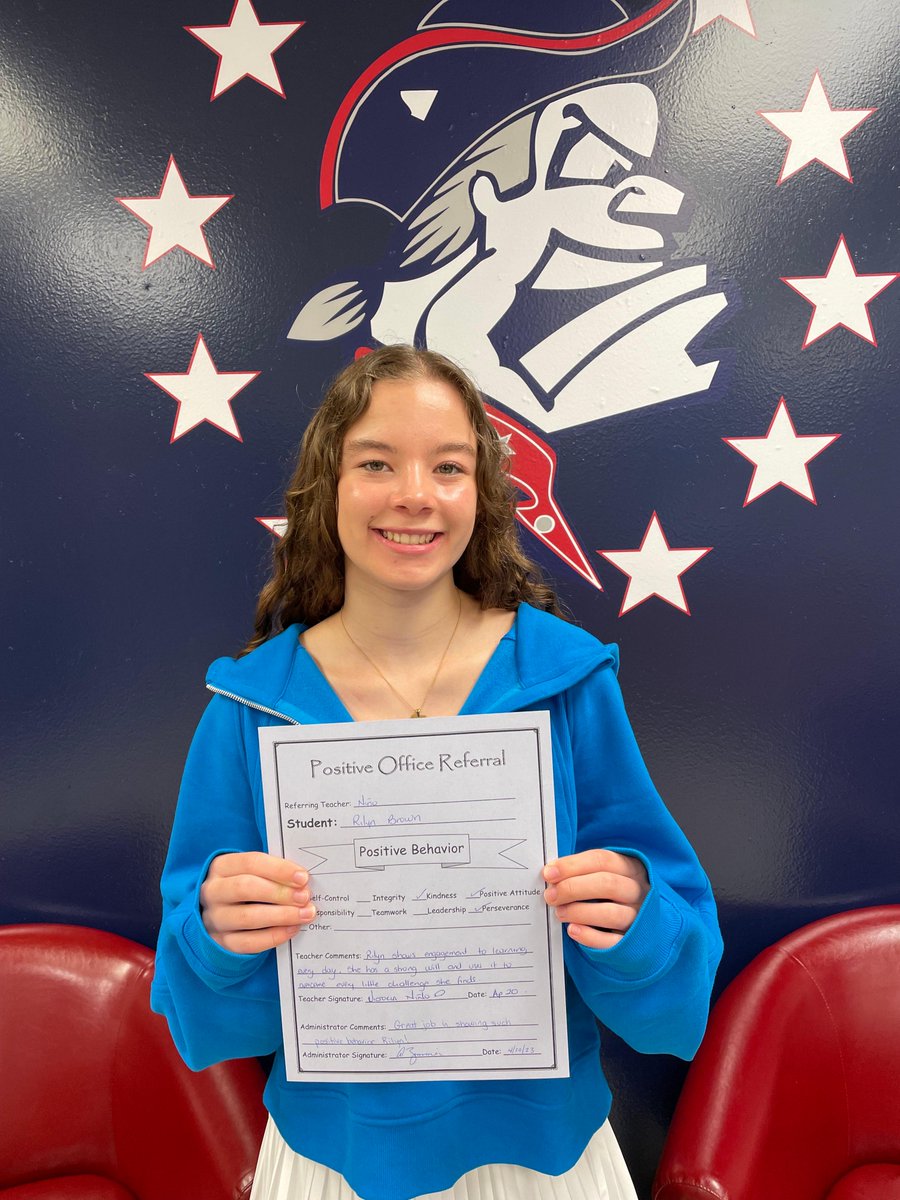 Positive Office Referral
Referring Teacher: Niño
Student: Rilyn Brown
Positive Behavior
elf-Control Integrity ✓Kindness ✓Positive Attitude
ponsibility Teamwork Leadership ✓Perseverance
Other:
Teacher Comments: Rilyn shows engagement to learning
every day, she has a strong will and use it to
overcome every little challenge she finds
Teacher Signature: Niño Date: Ap 20
Administrator Comments: Great job in showing such
positive behavior Rilyn!
Administrator Signature: Date: 4/20/23